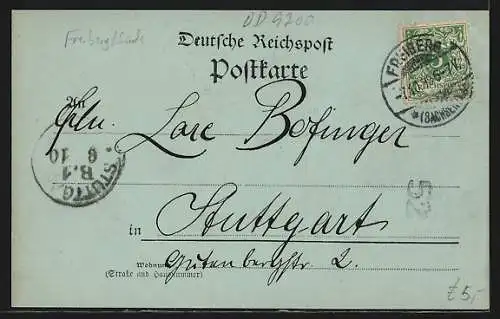 DD 9200
Deutsche Reichspost
Postkarte
FREIBERG
(SACHSEN)
An
Frln. Lore Bofinger
STUTTG
B.1
6
10
52
in Stuttgart
Gutenbergstr. 2.
Wohnung
(Straße und Hausnummer)
£5,-